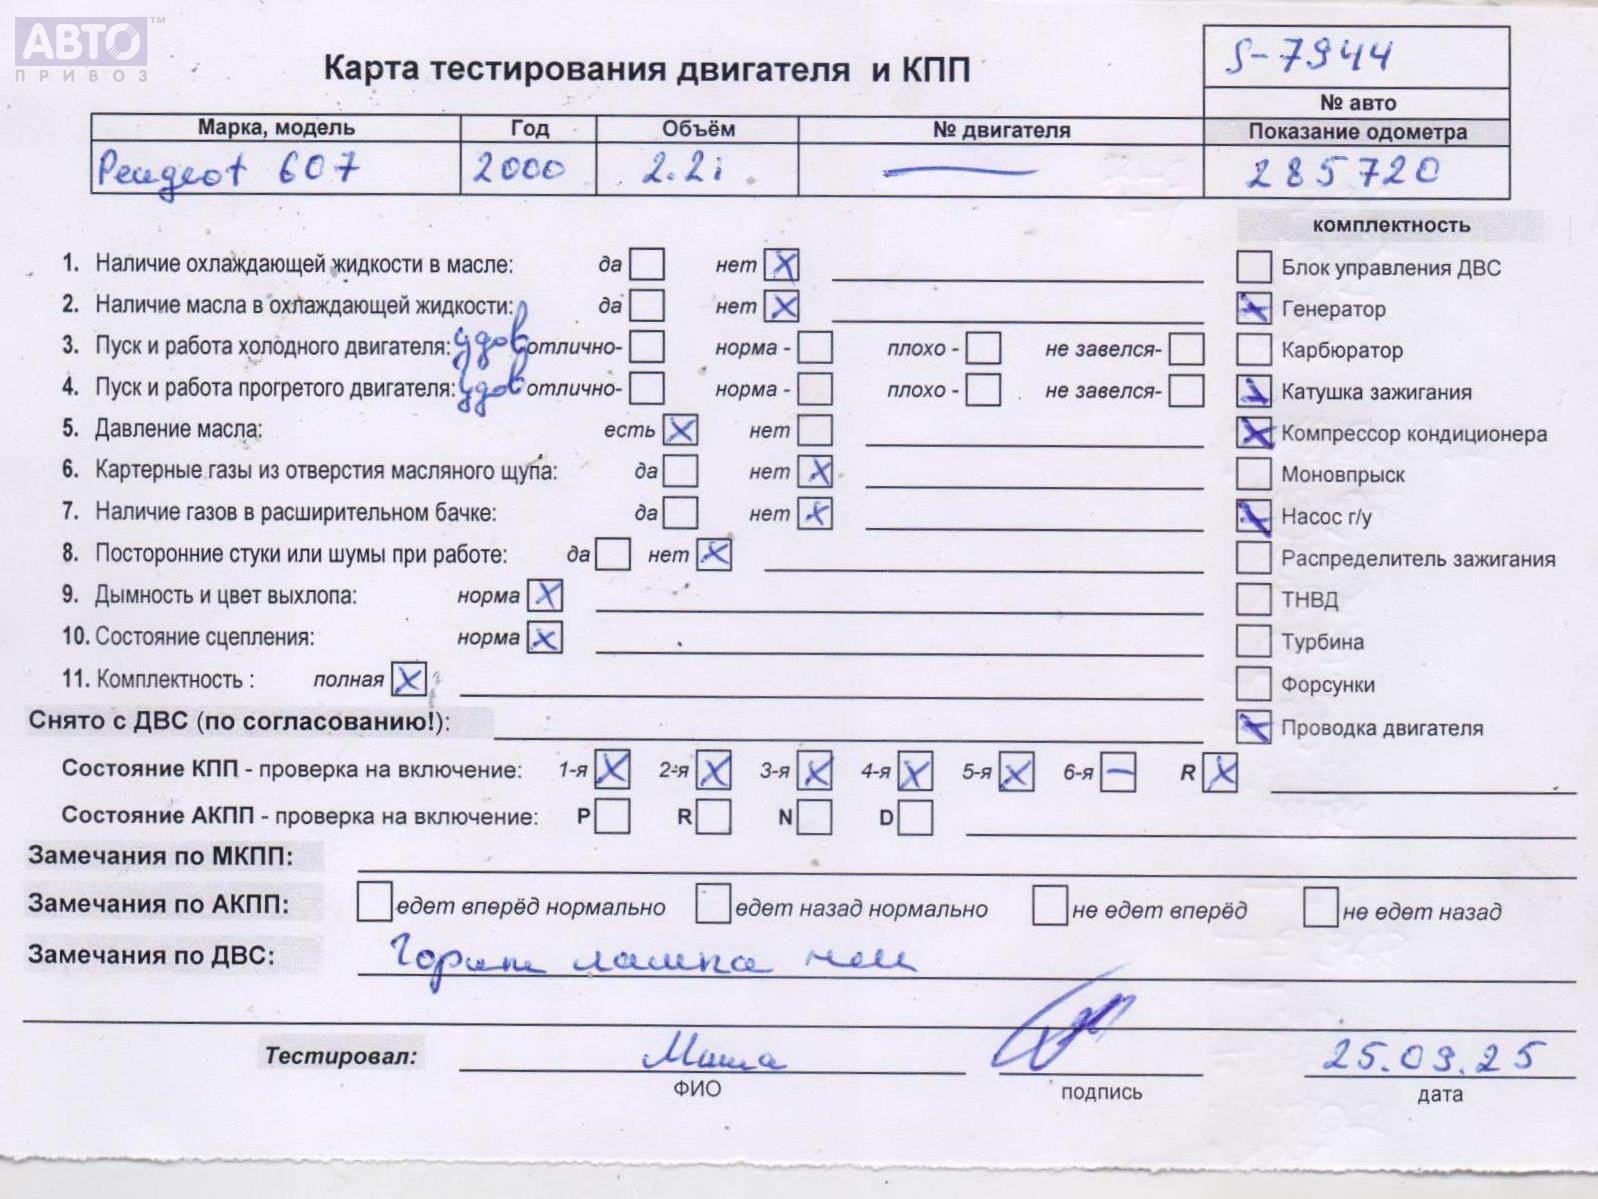 АВТО™
ПРИВОЗ
Карта тестирования двигателя и КПП
S-7944
№ авто
Марка, модель Год Объём № двигателя Показание одометра
Peugeot 607 2000 2.2i — 285720
комплектность
1. Наличие охлаждающей жидкости в масле: да нет X
Блок управления ДВС
2. Наличие масла в охлаждающей жидкости: да нет X
X Генератор
3. Пуск и работа холодного двигателя: удов отлично- норма - плохо - не завелся-
Карбюратор
4. Пуск и работа прогретого двигателя: удов отлично- норма - плохо - не завелся-
X Катушка зажигания
5. Давление масла: есть X нет
X Компрессор кондиционера
6. Картерные газы из отверстия масляного щупа: да нет X
Моновпрыск
7. Наличие газов в расширительном бачке: да нет X
X Насос г/у
8. Посторонние стуки или шумы при работе: да нет X
Распределитель зажигания
9. Дымность и цвет выхлопа: норма X
ТНВД
10. Состояние сцепления: норма X
Турбина
11. Комплектность : полная X
Форсунки
Снято с ДВС (по согласованию!):
X Проводка двигателя
Состояние КПП - проверка на включение: 1-я X 2-я X 3-я X 4-я X 5-я X 6-я — R X
Состояние АКПП - проверка на включение: P R N D
Замечания по МКПП:
Замечания по АКПП: едет вперёд нормально едет назад нормально не едет вперёд не едет назад
Замечания по ДВС: Горит лампа
Тестировал: Миша 25.03.25
ФИО подпись дата